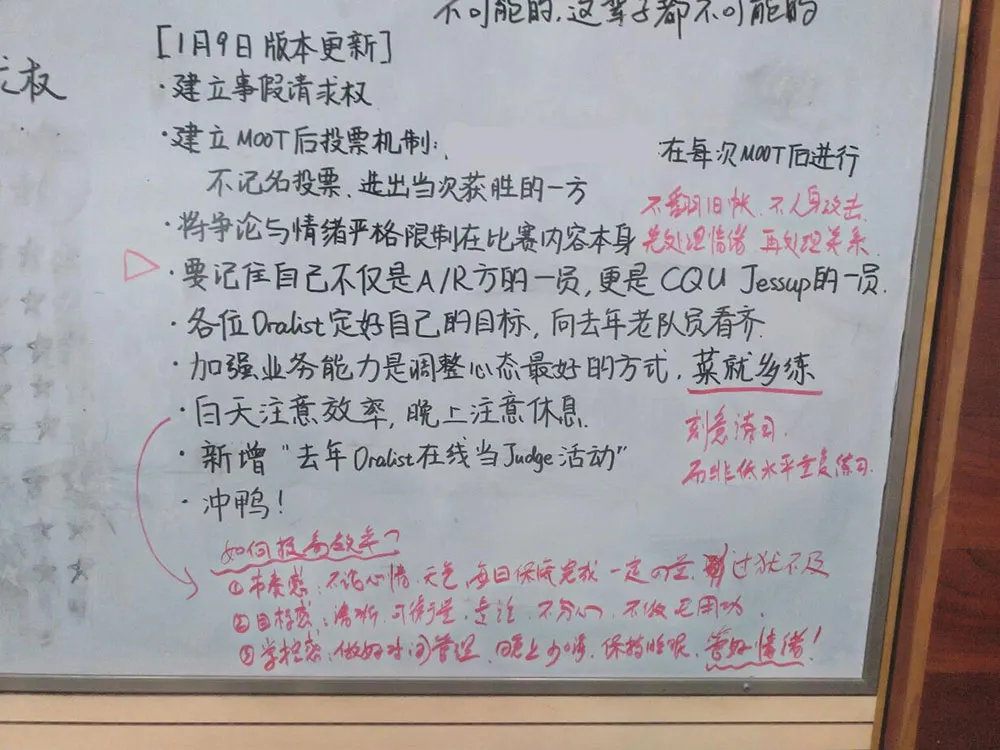 不可能的,这辈子都不可能的
求权
[1月9日版本更新]
·建立事假请求权
·建立MOOT后投票机制:
·在每次MOOT后进行
不记名投票、选出当次获胜的一方
不翻旧帐、不人身攻击
·将争论与情绪严格限制在比赛内容本身
先处理情绪 再处理关系
▷·要记住自己不仅是A/R方的一员,更是CQU Jessup的一员.
·各位Oralist定好自己的目标,向去年老队员看齐.
·加强业务能力是调整心态最好的方式,菜就多练
·白天注意效率,晚上注意休息.
刻意练习.
·新增“去年Oralist在线当Judge活动”
而非低水平重复练习.
·冲鸭!
如何提高效率?
①节奏感:不论心情、天气,每日保质完成一定的量,过犹不及
②目标感:清晰、可衡量、专注、不分心、不做无用功.
③掌控感:做好时间管理、晚上少喝、保持睡眠、管好情绪!